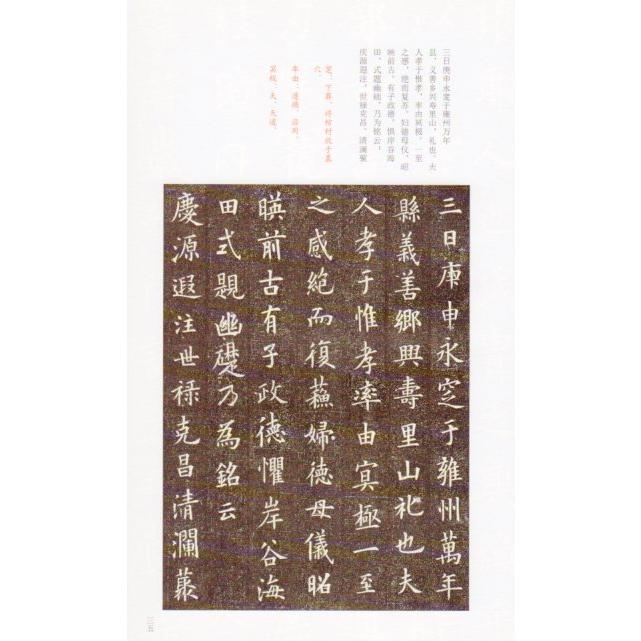 三日庚申永窆于雍州万年
县。义善乡兴寿里山，礼也。夫
人孝于惟孝，率由冥极。一至
之感，绝而复苏。妇德母仪，昭
映前古。有子政德，惧岸谷海
田，式题幽础，乃为铭云：
庆源遐注，世禄克昌，清澜蘂
窆：下葬，将棺材放于墓
穴。
率由：遵循，沿用。
冥极：天、天道。
三日庚申永窆于雍州萬年
縣義善鄉興壽里山礼也夫
人孝于惟孝率由冥極一至
之感絶而復蘓婦德母儀昭
暎前古有子政德懼岸谷海
田式題幽礎乃為銘云
慶源遐注世禄克昌清瀾蘂
三五